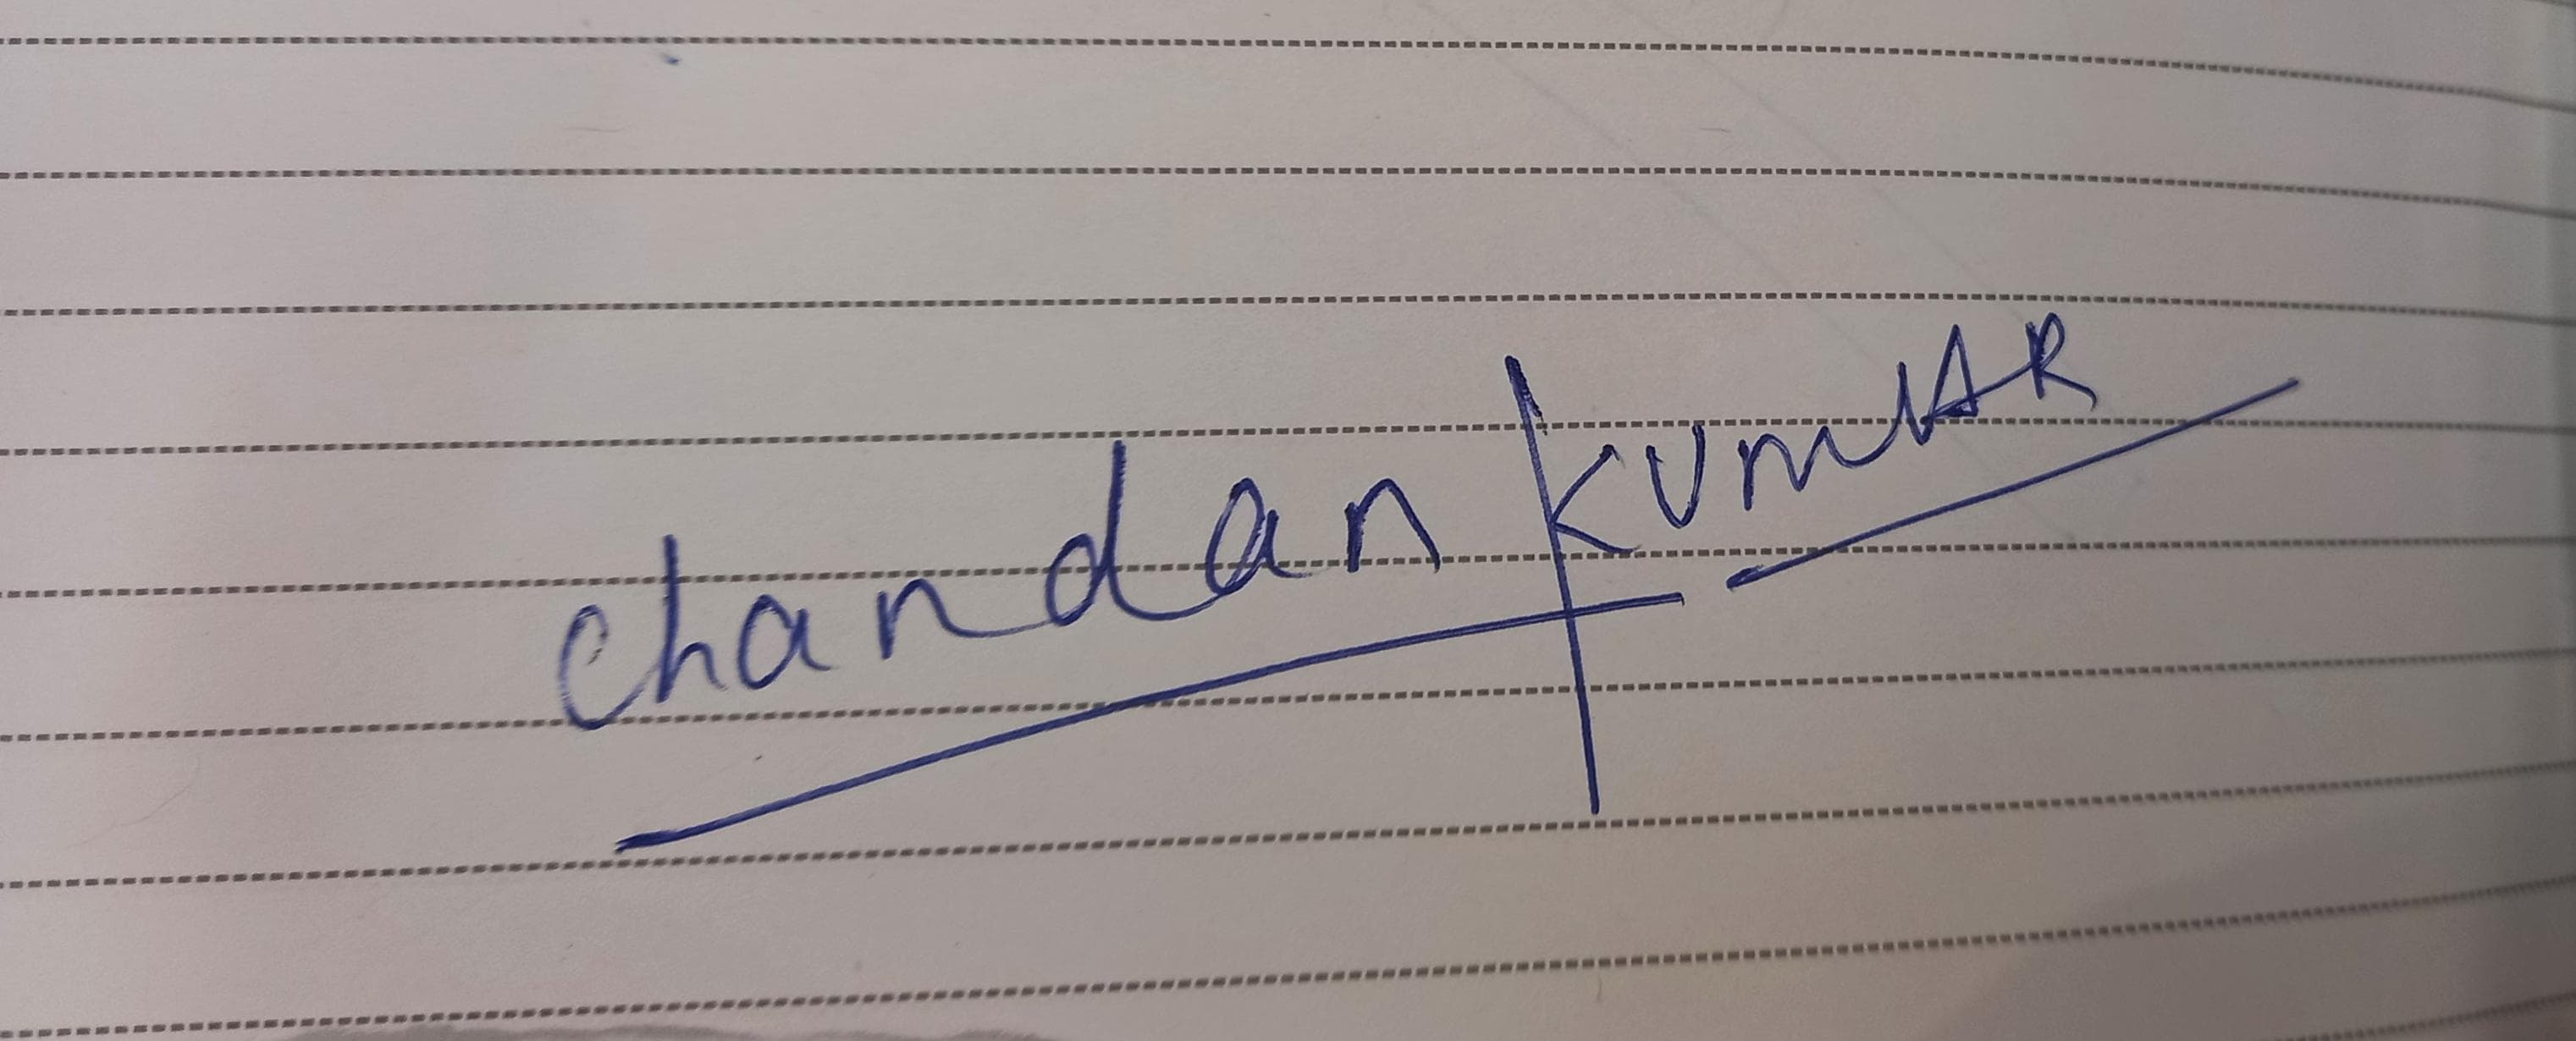 Chandan KumAR